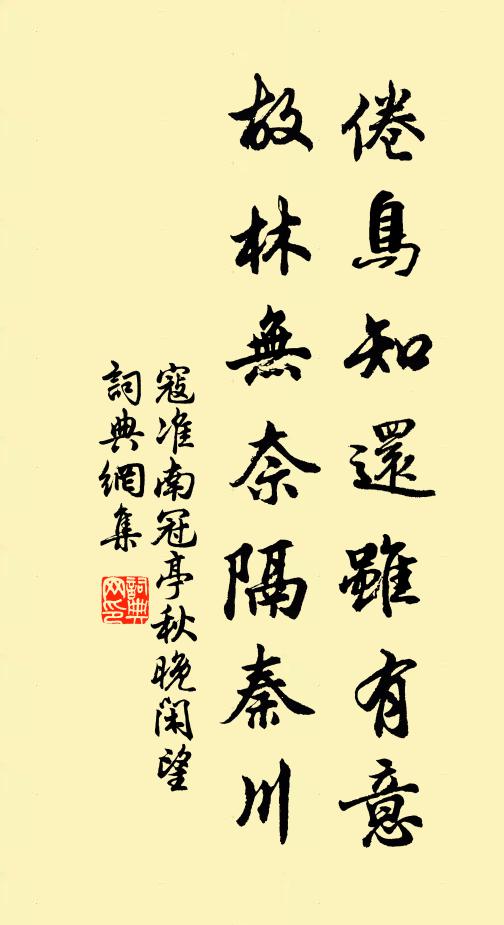 倦鳥知還雖有意
故林無奈隔秦川
寇准南冠亭秋晚閑望
詞典網集